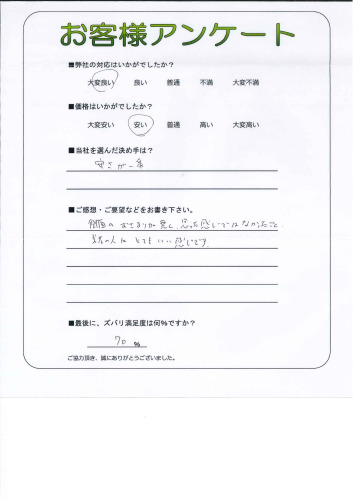 お客様アンケート
■弊社の対応はいかがでしたか?
大変良い 良い 普通 不満 大変不満
■価格はいかがでしたか?
大変安い 安い 普通 高い 大変高い
■当社を選んだ決め手は?
安さが一番
■ご感想・ご要望などをお書き下さい。
のおさまりが悪く 思った感じではなかったこと
の人は とてもいい感じです
■最後に、ズバリ満足度は何%ですか?
70 %
ご協力頂き、誠にありがとうございました。